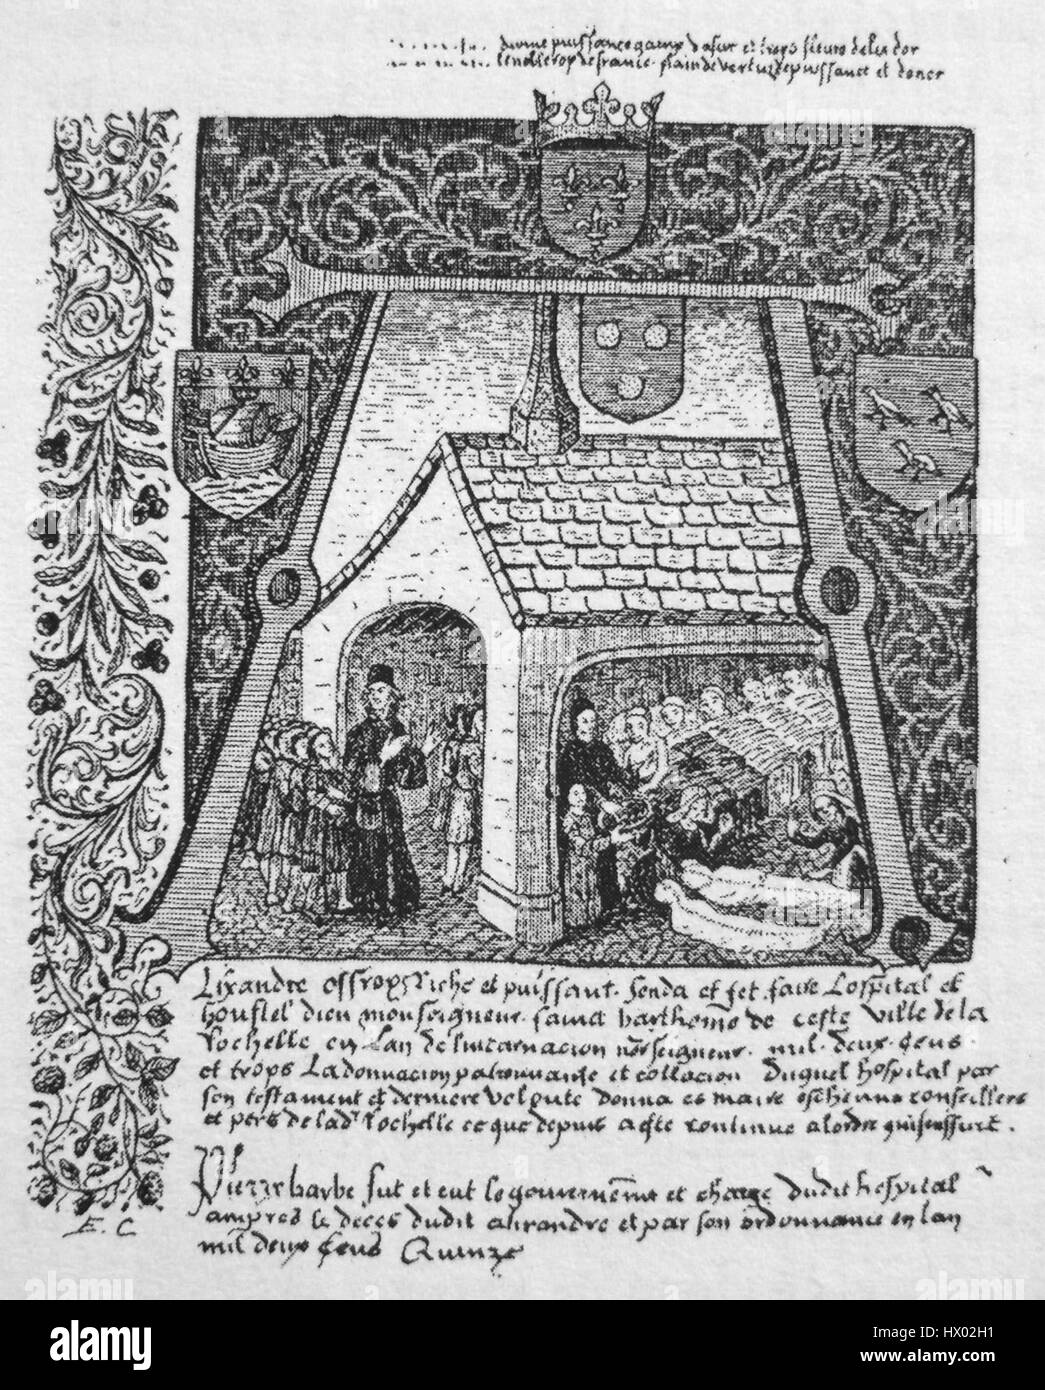 divine puissance champ d asur et troys fleurs de lix d or
le noble roy de france plain de vertuz de puissance et
Lixandre Offroy Riche et puissant fenda et fet faire Lospital et
houstel dieu monseigneur sainct barthomé de ceste ville de la
Rochelle en Lan de lincarnacion nore seigneur mil deux cens
et troys La donnacion patronnaise et collacion duquel hospital par
son testament et derniere volente donna es maire eschevins conseillers
et pers de lad Rochelle ce que depuis a este continue a lordre qui sensfuit.
Pierre barbe fut et eut le gouvernemt et charge dudit hospital
ampres le deces dudit alixandre et par son ordonnance en lan
mil deux cens Quinze
E. C
alamy
HX02H1
www.alamy.com